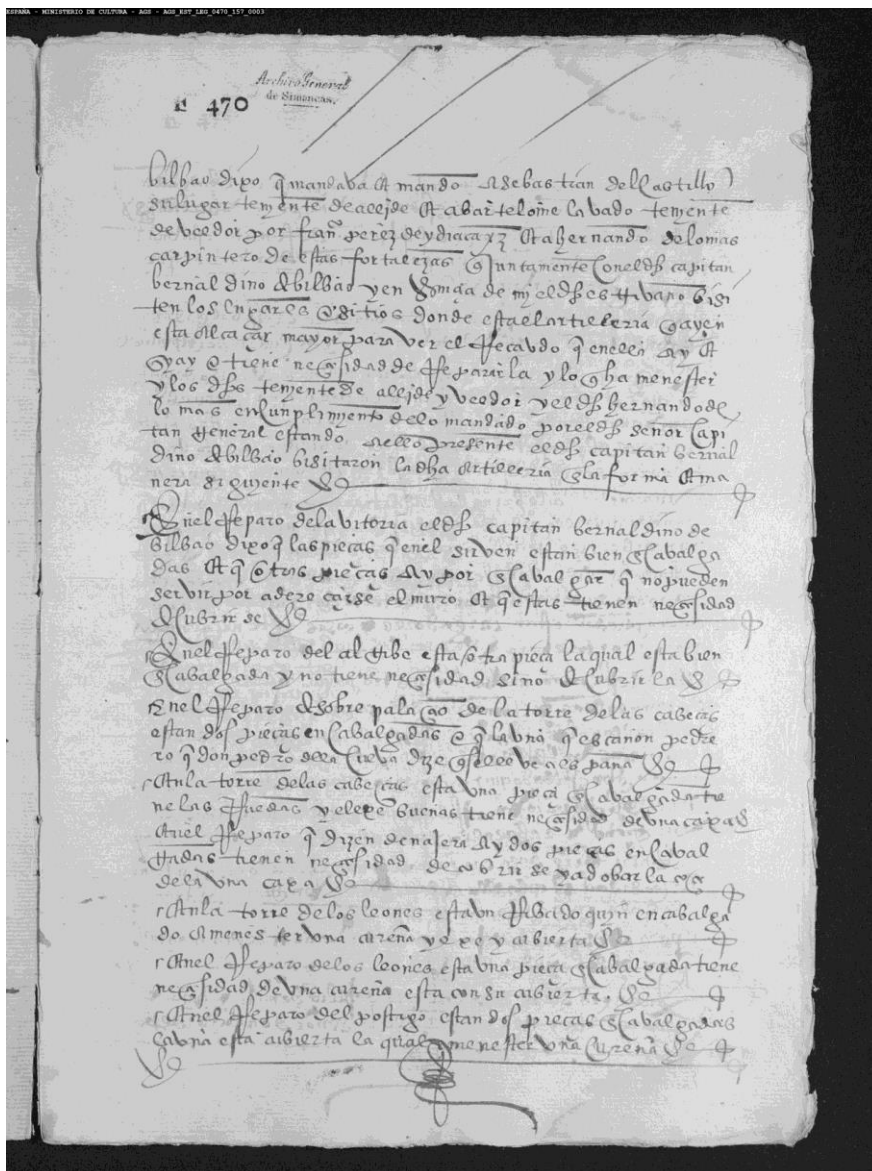 ESPAÑA - MINISTERIO DE CULTURA - AGS - AGS_EST_LEG_0470_157_0003
Archivo General
de Simancas.
E 470
bilbao dixo q mandava et mando a sebastian del castillo
su lugar tenyente de allcde et a bartolome lavado tenyente
de veedor por fran perez de ydiacayz et a hernando de lomas
carpintero de estas fortalezas q juntamente con el dho capitan
bernaldino de bilbao y en de my el dho escrivano bisi
ten los lugares e sitios donde esta el artilleria q ay en
esta alcaçar mayor para ver el rrecavdo q en ella ay et
q ay e tiene neçesidad de rreparirla y lo q ha menester
y los dhos tenyente de allcde y veedor y el dho hernando de
lomas en cunplimyento de lo mandado por el dho señor capi
tan general estando a ello presente el dho capitan bernal
dino de bilbao bisitaron la dha artilleria en la forma et ma
nera siguyente
En el rreparo de la vitoria el dho capitan bernaldino de
bilbao dixo q las pieças q en el sirven estan bien encavalga
das et q otras pieças ay por encavalgar q no pueden
servir por adereçarse el muro et q estas tienen neçesidad
de cubrirse
En el rreparo del algibe esta otra pieça la qual esta bien
encabalgada y no tiene neçesidad sino de cubrirla
En el rreparo de sobre palaçio de la torre de las cabeças
estan dos pieças encabalgadas e q la una q es canon pedre
ro q don pedro de la cueva dize q se lleve a españa
En la torre de las cabeças esta una pieça encabalgada tie
ne las rruedas y el exe buenas tiene neçesidad de una caxa
En el rreparo q dizen de najera ay dos pieças encaval
gadas tienen neçesidad de cobrirse y adobar la
de la una caxa
En la torre de los leones esta un rribadoquin encabalga
do a menester una cureña y exe y cubierta
En el rreparo de los leones esta una pieça encabalgada tiene
neçesidad de una cureña esta con su cubierta
En el rreparo del postigo estan dos pieças encabalgadas
la una esta cubierta la qual a menester una cureña